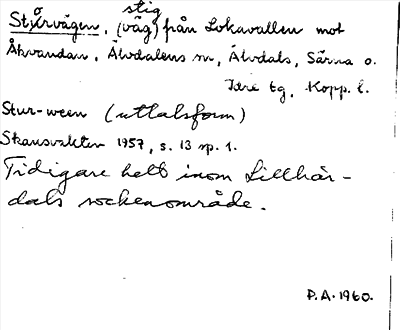 Störvägen, stig (väg) från Lokavallen mot
Åkvandan, Älvdalens sn, Älvdals, Särna o.
Idre tg, Kopp. l.
Stur-ween (uttalsform)
Skansvakten 1957, s. 13 sp. 1.
Tidigare helt inom Lillhär-
dals sockenområde.
P.A. 1960.